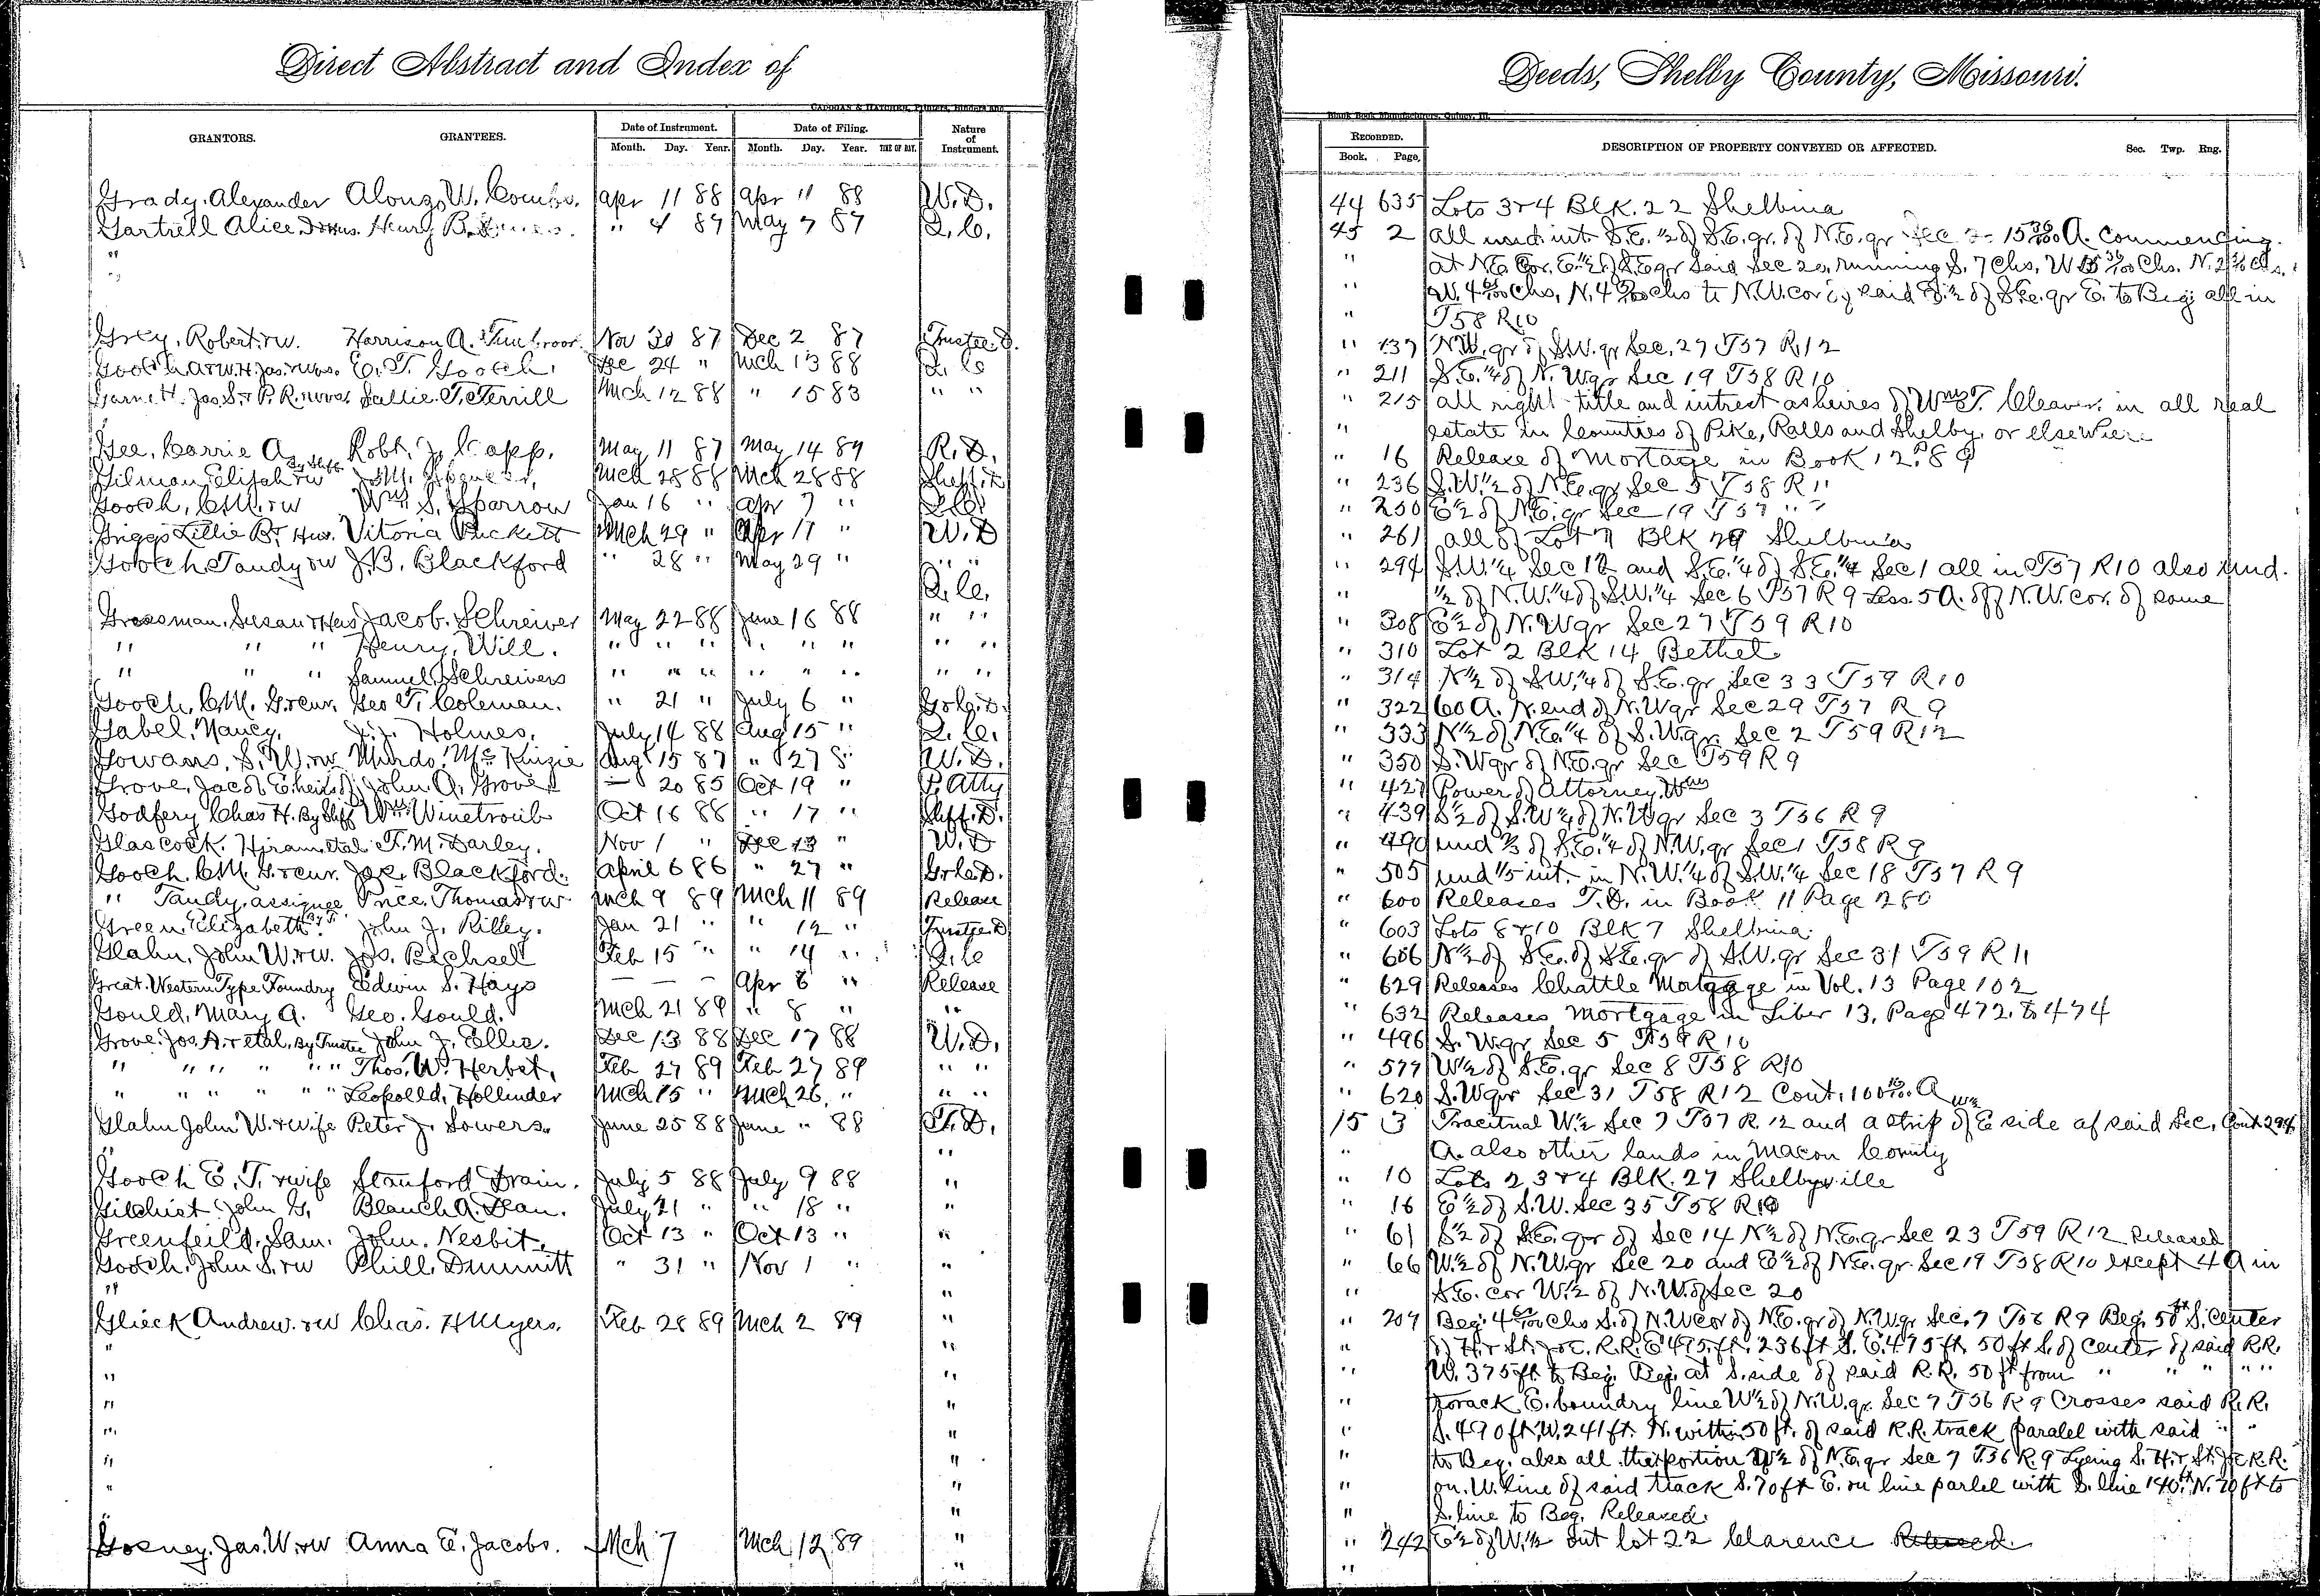 Direct Abstract and Index of
CADOGAN & HATCHER, Printers, Binders and
GRANTORS. GRANTEES. Date of Instrument. Date of Filing. Nature of Instrument.
Month. Day. Year. Month. Day. Year. TIME OF DAY.
Grady, Alexander Alonzo W. Combs. Apr 11 88 Apr 11 88 W.D.
Gartrell Alice D & Hus. Henry B. " 4 87 May 7 87 Q.C.
"
"
Grey, Robert & w. Harrison A. Nov 30 87 Dec 2 87 Trustee D.
Gooch E. T. Gooch. Dec 24 " Mch 13 88 Q. C
Jas. S. & P. R. Sallie T. Terrill Mch 12 88 " 15 83 " "
Gee, Carrie A. Robt. J. Capp. May 11 87 May 14 89 R. D.
Gilman Elijah & w By Shff Mch 28 88 Mch 28 88 Shff. D
Gooch, C.M. & w Wm. S. Sparrow Jan 16 " Apr 7 "
Griggs Lillie B & Hus. Vitoria Puckett Mch 29 " Apr 17 " W. D
Gooch Tandy & w J.B. Blackford " 28 " May 29 " " "
Q. C.
Grossman, Susan & Hus Jacob. Schreiver May 22 88 June 16 88 " "
" " " Henry, Will. " " " " " " " "
" " " Samuel, Schreivers " " " " " " " "
Gooch, C.M. G. & cur. Geo T. Coleman. " 21 " July 6 " G & C. D.
Gabel, Nancy. Holmes. July 14 88 Aug 15 " Q. C.
Gowans, S. W. & w Murdo. McKinzie Aug 15 87 " 27 8 W. D.
Grove, Jacob E. heirs of John A. Grove — 20 85 Oct 19 " P. Atty
Godfery Chas H. By Shff Wm Winetroub Oct 16 88 " 17 " Shff. D.
Glascock. Hiram etal F. M. Darley. Nov 1 " Dec 13 " W. D
Gooch C.M. G. & cur. Jas. Blackford. April 6 86 " 27 " G & C. D.
" Tandy, assignee Price, Thomas & w Mch 9 89 Mch 11 89 Release
Green, Elizabeth By Tr. John J. Rilley. Jan 21 " " 12 " Trustee D
Glahn, John W. & w. Jos. Bechsel Feb 15 " " 14 " Q. C
Great Western Type Foundry Edwin S. Hays — — — Apr 6 " Release
Gould, Mary A. Geo. Gould. Mch 21 89 " 8 " "
Grove. Jos. A. & etal. By Trustee John J. Ellis. Dec 13 88 Dec 17 88 W. D.
" " " " " Thos. W. Herbst, Feb 27 89 Feb 27 89 " "
" " " " " " Leopolld, Hollinder Mch 15 " Mch 26 " " "
Glahn John W. & wife Peter J. Sowers. June 25 88 June " 88 T. D.
" "
Gooch E. T. & wife Stanford Drain. July 5 88 July 9 88 "
Gilchist John G. Blanch A. Dan. July 21 " " 18 " "
Greenfeild. Sam. John. Nesbit. Oct 13 " Oct 13 " "
Gooch, John S. & w Phill. Dimmitt " 31 " Nov 1 " "
" "
Glieck Andrew. & w Chas. H Myers. Feb 28 89 Mch 2 89 "
" "
" "
" "
" "
" "
" "
" "
Gosney. Jas. W. & w Anna E. Jacobs. Mch 7 Mch 12 89 "
"
Deeds, Shelby County, Missouri.
Blank Book Manufacturers, Quincy, Ill.
RECORDED. DESCRIPTION OF PROPERTY CONVEYED OR AFFECTED. Sec. Twp. Rng.
Book. Page,
44 635 Lots 3 & 4 Blk. 22 Shelbina
45 2 all und. int. S.E. 1/2 of S.E. qr. of N.E. qr Sec 15 36/100 A. commencing.
" at N.E. Cor. E 1/2 of S.E qr said Sec 20, running S. 7 Chs, W Chs. N. Chs.
" W. 4 Chs, N. 4 Chs to N.W. cor of said of S.E. qr E. to Beg: all in
" T58 R10
" 137 N.W. qr of S.W. qr Sec. 27 T57 R.12
" 211 S.E. 1/4 of N. W qr Sec 19 T58 R10
" 215 all right title and intrest as heires of Wm T. Cleaver. in all real
" estate in Counties of Pike, Ralls and Shelby, or elsewhere
" 16 Release of Mortage in Book 12. P 89
" 236 S.W. 1/2 of N.E. qr Sec 5 T58 R 11
" 250 E 1/2 of N.E. qr Sec 19 T57 "
" 261 all of Lot 7 Blk 29 Shelbina
" 294 S.W. 1/4 Sec 12 and S.E. 1/4 of S.E. 1/4 Sec 1 all in T57 R10 also und.
" 1/2 of N.W. 1/4 of S.W. 1/4 Sec 6 T57 R 9 Less. 5 A. off N.W. cor. of same
" 308 E 1/2 of N. W qr Sec 27 T59 R10
" 310 Lot 2 Blk 14 Bethel
" 314 N 1/2 of S.W. 1/4 of S.E. qr Sec 33 T59 R10
" 322 60 A. N. end of N. W qr Sec 29 T57 R 9
" 333 N 1/2 of N.E. 1/4 of S.W. qr. Sec 2 T59 R12
" 350 S. W qr of N.E. qr Sec T59 R 9
" 427 Power of Attorney.
" 439 S 1/2 of S.W 1/4 of N.W qr Sec 3 T56 R 9
" 490 und 1/3 of S.E. 1/4 of N.W. qr Sec 1 T58 R 9
" 505 und 1/5 int. in N.W. 1/4 of S.W. 1/4 Sec 18 T57 R 9
" 600 Releases T.D. in Book 11 Page 280
" 603 Lots 8 & 10 Blk 7 Shelbina.
" 606 N 1/2 of S.E. of S.E. qr of S.W. qr Sec 31 T59 R 11
" 629 Releases Chattle Mortgage in Vol. 13 Page 102
" 632 Releases Mortgage in Liber 13, Page 472. to 474
" 496 S. W qr Sec 5 T58 R 10
" 577 W 1/2 of S.E. qr Sec 8 T58 R10
" 620 S. W qr Sec 31 T58 R12 Cont. 100 A
15 3 Fracitnal W 1/2 Sec 7 T57 R. 12 and a strip of E side of said Sec, Cont 294
" A. also other lands in Macon County
" 10 Lots 2 3 & 4 Blk. 27 Shelbyville
" 16 E 1/2 of S.W. Sec 35 T58 R10
" 61 S 1/2 of S.E. qr of Sec 14 N 1/2 of N.E. qr Sec 23 T59 R12 Released
" 66 W 1/2 of N. W qr Sec 20 and E 1/2 of N.E. qr. Sec 19 T58 R10 except 4 A in
" S.E. cor W 1/2 of N.W. of Sec 20
" 207 Beg. 4 Chs S. of N.W cor of N.E. qr of N.W qr Sec. 7 T56 R 9 Beg. 50 ft S. center
" of H & St. Joe. R.R. E 495 ft. 236 ft S. E. 475 ft. 50 ft S. of center of said R.R.
" W. 375 ft to Beg. Beg. at S. side of said R.R. 50 ft from " " " "
" track E. boundry line W 1/2 of N.W. qr. Sec 7 T56 R 9 Crosses said R. R.
" S. 490 ft, W. 241 ft. N. within 50 ft. of said R.R. track paralel with said " "
" to Beg. also all that portion W 1/2 of N.E. qr Sec 7 T56 R. 9 Lyeing S. H & St. Joe R.R.
" on. W. line of said track S. 70 ft E. on line parlel with S. line 140 ft N. 70 ft to
" S. line to Beg. Released.
" 242 E 1/2 of W 1/2 out lot 22 Clarence Released
"